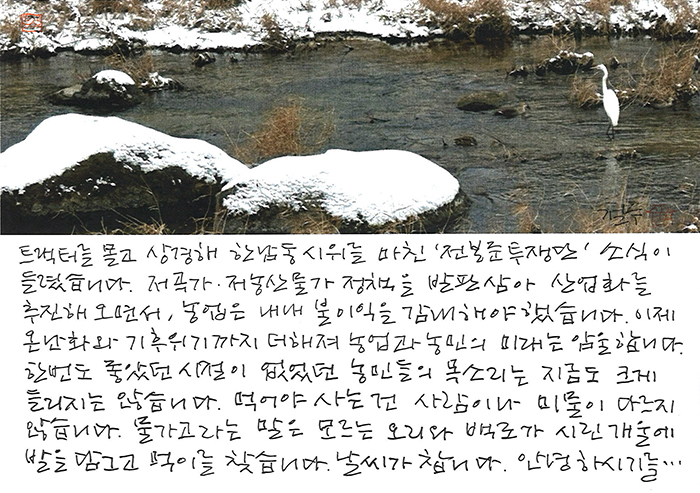 트랙터를 몰고 상경해 한남동 시위를 마친 '전봉준투쟁단' 소식이
들렸습니다. 저곡가·저농산물가 정책을 발판삼아 산업화를
추진해 오면서, 농업은 내내 불이익을 감내해야 했습니다. 이제
온난화와 기후위기까지 더해져 농업과 농민의 미래는 암울합니다.
한번도 좋았던 시절이 없었던 농민들의 목소리는 지금도 크게
들리지는 않습니다. 먹어야 사는 건 사람이나 미물이 다르지
않습니다. 물가고라는 말은 모르는 오리와 백로가 시린 개울에
발을 담그고 먹이를 찾습니다. 날씨가 찹니다. 안녕하시기를…